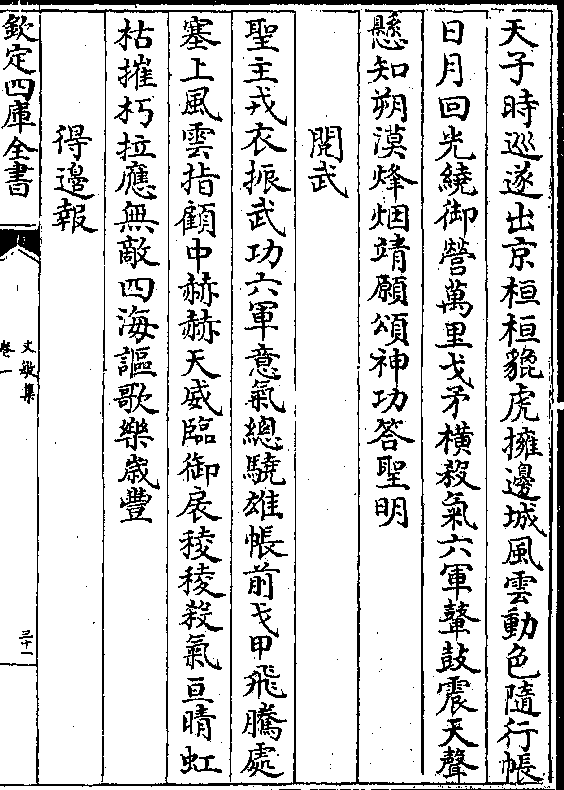 天子時巡遂出京桓桓貔虎擁邊城風雲動色隨行帳
日月回光繞御營萬里戈矛橫殺氣六軍鼙鼓震天聲
懸知朔漠烽烟靖願頌神功答聖明
閱武
聖主戎衣振武功六軍意氣總驍雄帳前戈甲飛騰處
塞上風雲指顧中赫赫天威臨御扆稜稜殺氣亘晴虹
枯摧朽拉應無敵四海謳歌樂歲豐
得邊報
欽定四庫全書
文敏集
卷一
三十一